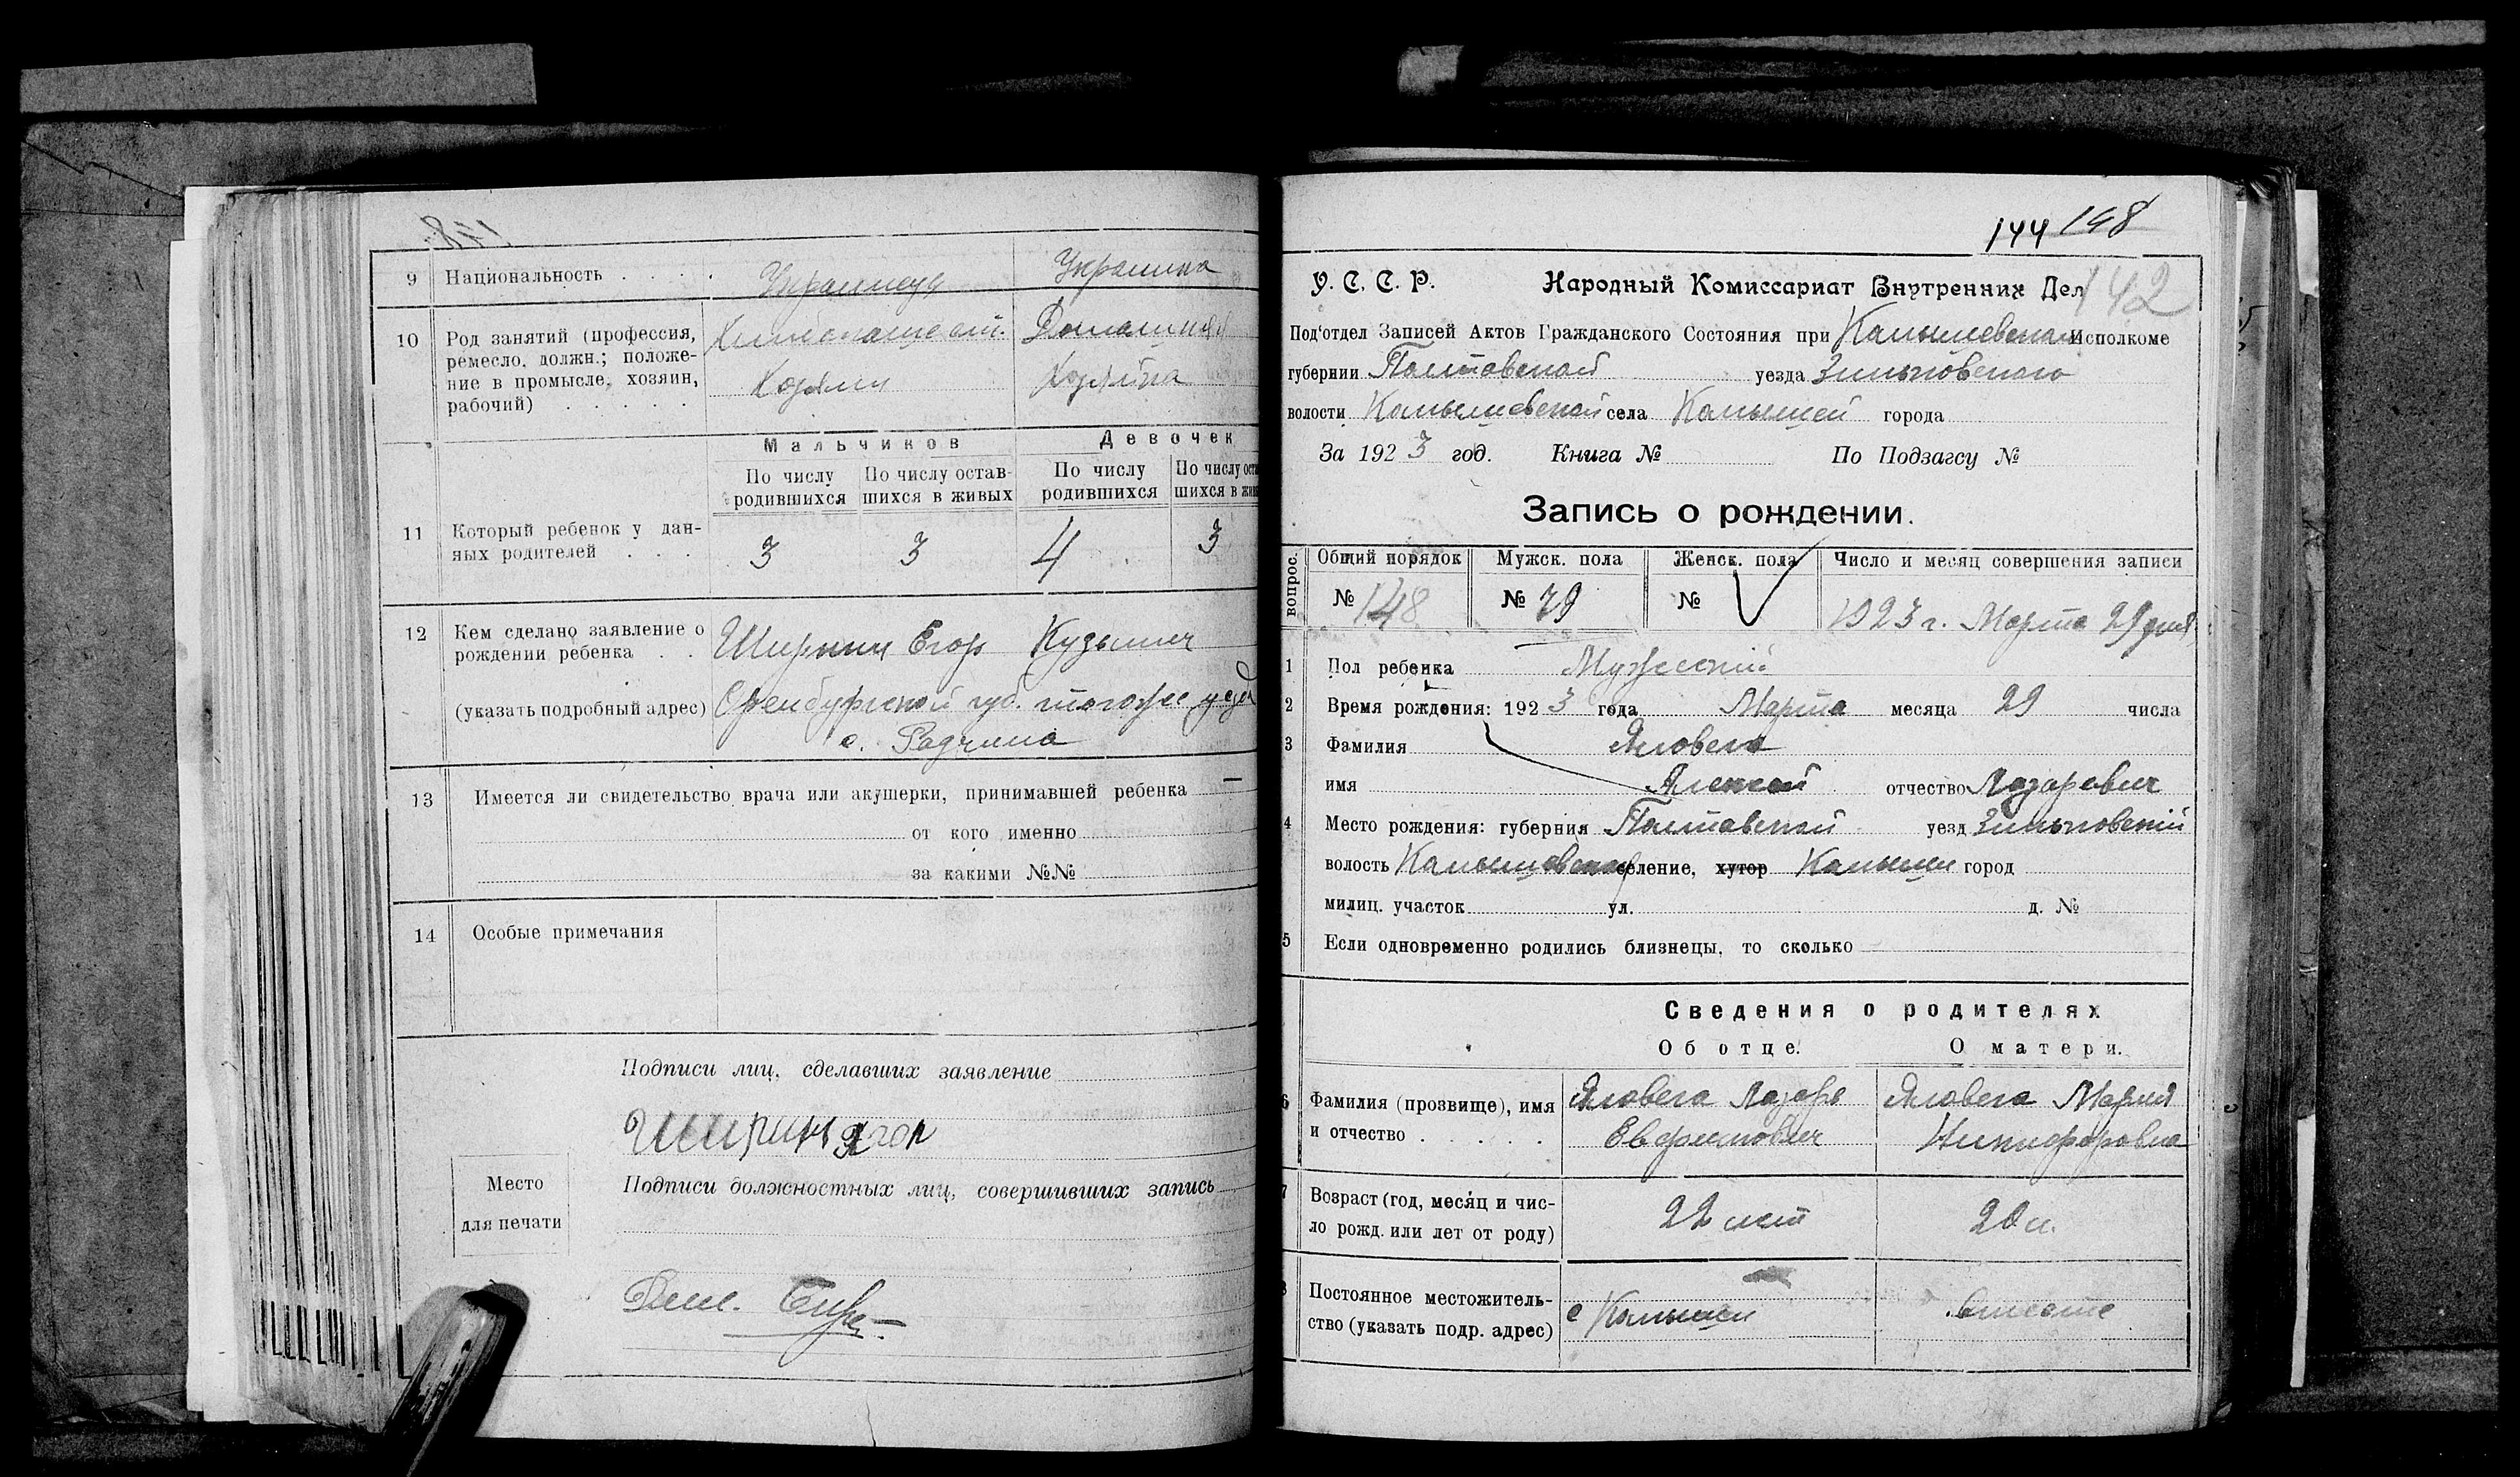 9 Национальность . . . . Украинец Украинка
10 Род занятий (профессия, Домашняя
ремесло, должн.; положе-
ние в промысле, хозяин, Хозяин Хозяйка
рабочий) . . . . .
Мальчиков Девочек
По числу родившихся По числу остав-шихся в живых По числу родившихся По числу оста шихся в жив
11 Который ребенок у дан-
ных родителей . . . 3 3 4 3
12 Кем сделано заявление о
рождении ребенка . . Ширнин Егор Кузьмич
(указать подробный адрес) Оренбургской губ. того же уезд
с.
13 Имеется ли свидетельство врача или акушерки, принимавшей ребенка —
от кого именно
за какими №№
14 Особые примечания
Подписи лиц, сделавших заявление
Место
для печати
Подписи должностных лиц, совершивших запись
144 148
142
У. С. С. Р. Народный Комиссариат Внутренних Дел
Под'отдел Записей Актов Гражданского Состояния при Камышевском Исполкоме
губернии Полтавской уезда Зиньковского
волости Камышевской села Камышей города
За 1923 год. Книга № По Подзагсу №
Запись о рождении.
вопрос. Общий порядок Мужск. пола Женск. пола Число и месяц совершения записи
№ 148 № 79 № 1923 г. Марта 29 дня
1 Пол ребенка Мужеский
2 Время рождения: 1923 года Марта месяца 29 числа
3 Фамилия Яловега
имя Алексей отчество Лазаревич
4 Место рождения: губерния Полтавской уезд Зиньковский
волость Камышевской селение, хутор Камыши город
милиц. участок ул. д. №
5 Если одновременно родились близнецы, то сколько
Сведения о родителях
Об отце. О матери.
6 Фамилия (прозвище), имя Яловега Лазарь Яловега Мария
и отчество . . . . . Никифоровна
7 Возраст (год, месяц и чис-
ло рожд. или лет от роду) 22 лет 20 л.
8 Постоянное местожитель-
ство (указать подр. адрес) с Камыши вместе